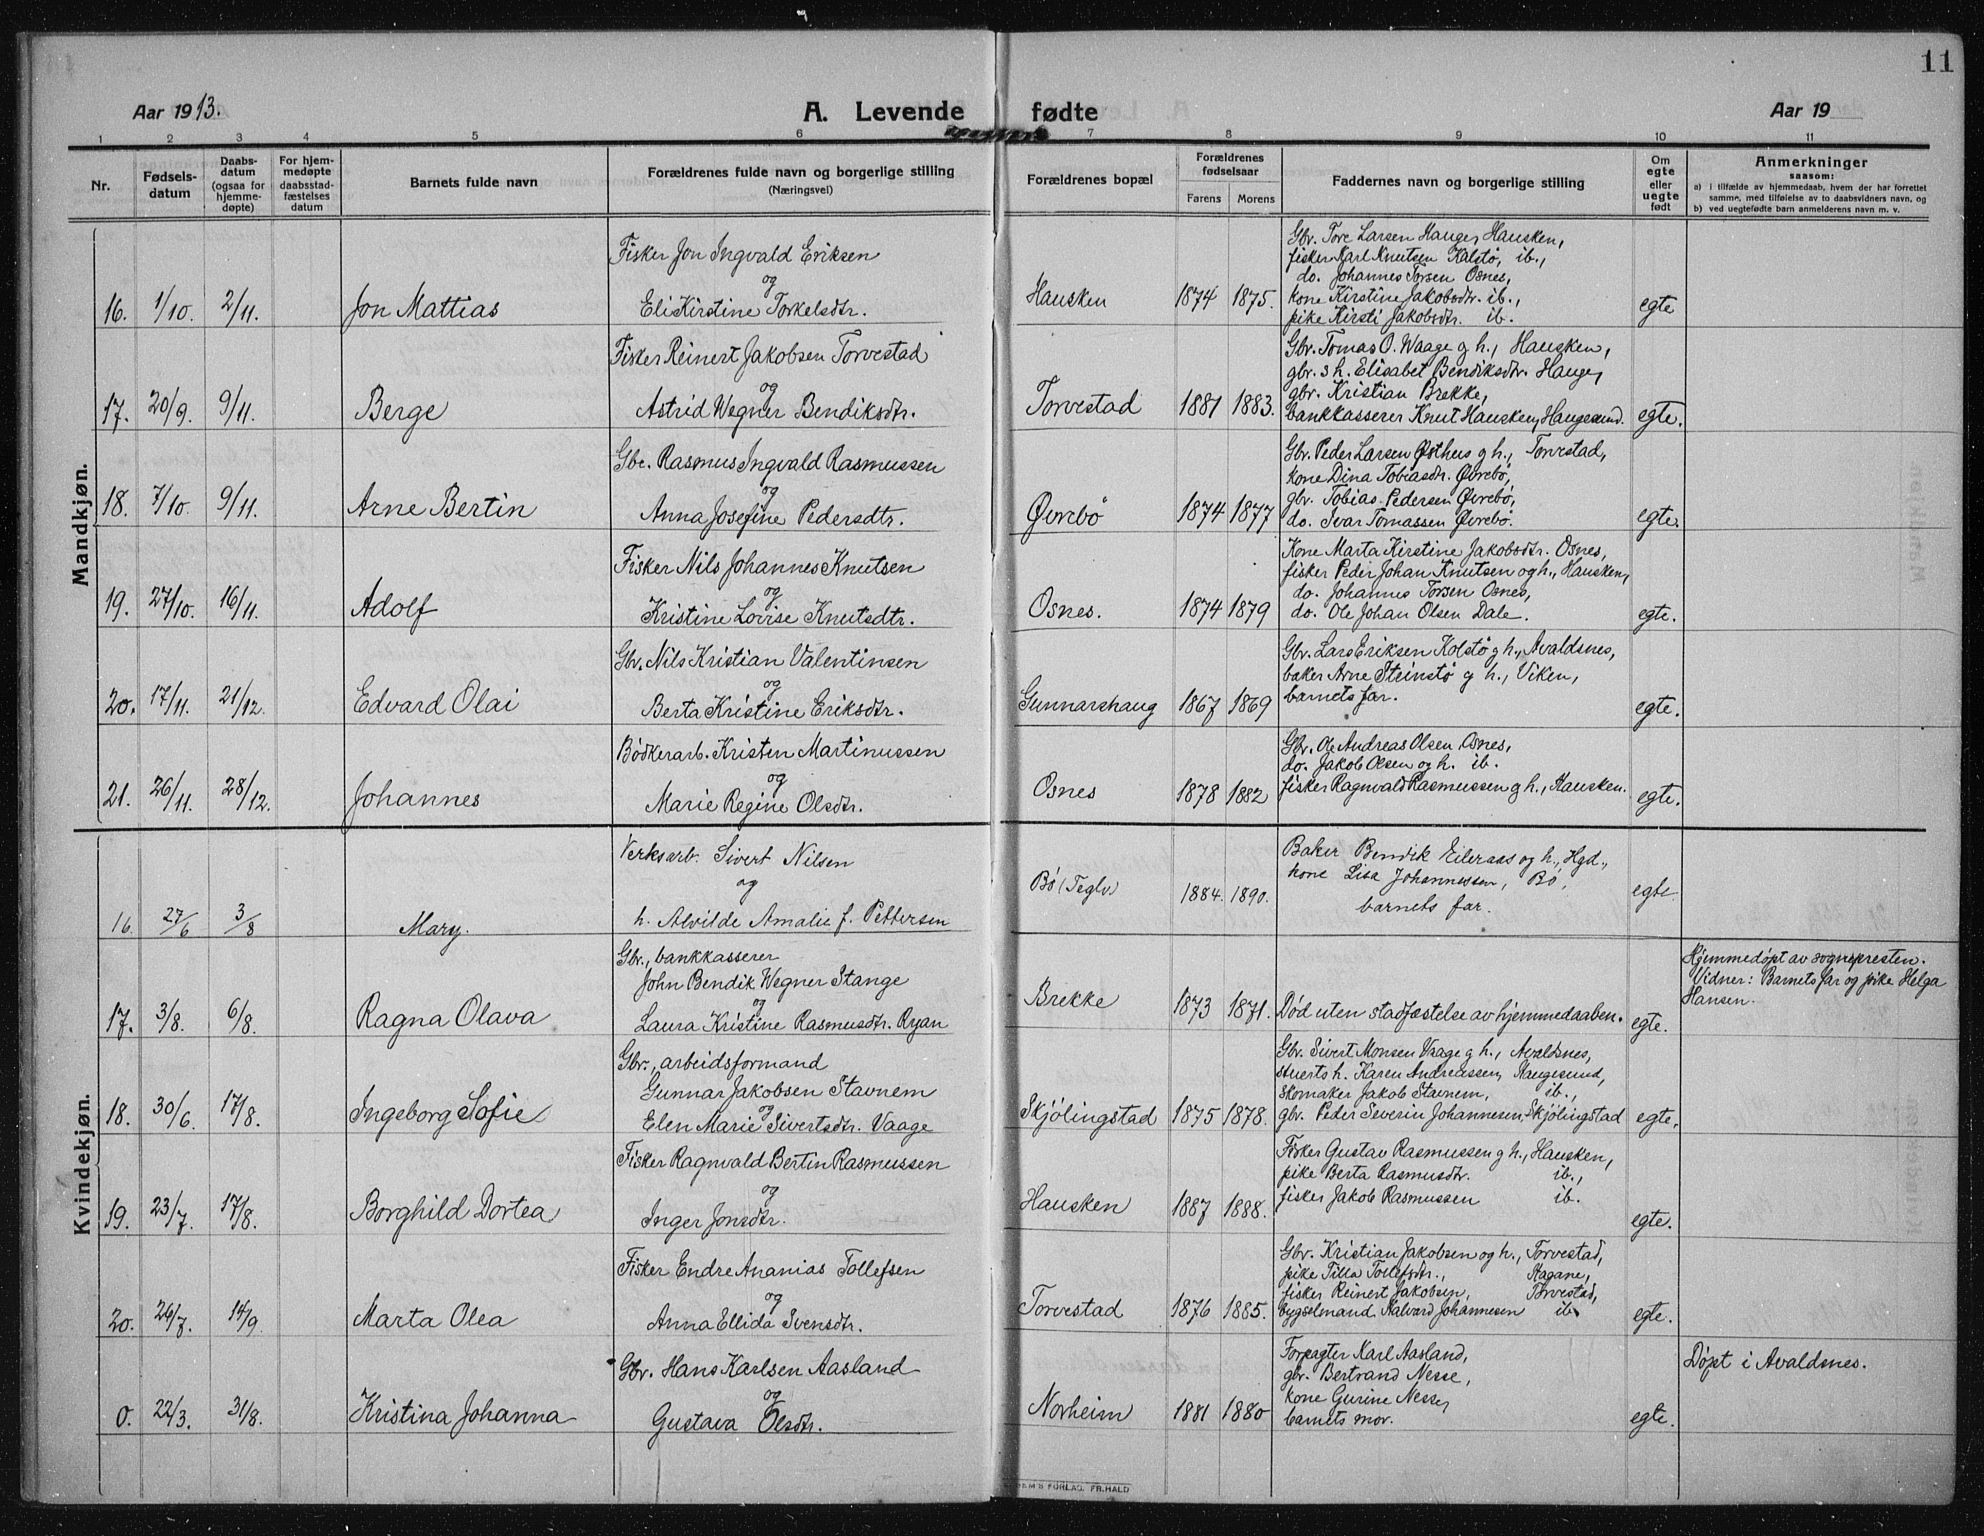 11
Aar 1913.
A. Levende fødte
Aar 19
1 2 3 4 5 6 7 8 9 10 11
Nr.
Fødsels-
datum
Daabs-
datum
(ogsaa for
hjemme-
døpte)
For hjem-
medøpte
daabsstad-
fæstelses
datum
Barnets fulde navn
Forældrenes fulde navn og borgerlige stilling
(Næringsvei)
Forældrenes bopæl
Forældrenes
fødselsaar
Farens Morens
Faddernes navn og borgerlige stilling
Om
egte
eller
uegte
født
Anmerkninger
saasom:
a) i tilfælde av hjemmedaab, hvem der har forrettet
samme, med tilføielse av to daabsvidners navn, og
b) ved uegtefødte barn anmelderens navn m. v.
Mandkjøn.
16. 1/10. 2/11. Jon Mattias
Fisker Jon Ingvald Eriksen
og
Eli Kirstine Torkelsdtr.
Hausken 1874 1875.
Gbr. Tore Larsen Hauge, Hausken,
fisker Karl Knutsen Kalstø, ib.,
do. Johannes Torsen Osnes,
kone Kirstine Jakobsdtr. ib.,
pike Kirsti Jakobsdtr. ib.
egte
17. 20/9. 9/11. Berge
Fisker Reinert Jakobsen Torvestad
og
Astrid Wegner Bendiksdtr.
Torvestad 1881 1883.
Gbr. Tomas O. Waage g h., Hausken,
gbr. s h. Elisabet Bendiksdtr. Hauge,
gbr. Kristian Brekke,
bankkasserer Knut Hausken, Haugesund.
egte.
18. 7/10. 9/11. Arne Bertin
Gbr. Rasmus Ingvald Rasmussen
og
Anna Josefine Pedersdtr.
Øvrebö 1874 1877
Gbr. Peder Larsen Østhus g h., Torvestad,
kone Dina Tobiasdtr. Øvrebö,
gbr. Tobias Pedersen Øvrebö,
do. Ivar Tomassen Øvrebö.
egte.
19. 27/10. 16/11. Adolf
Fisker Nils Johannes Knutsen
og
Kristine Lovise Knutsdtr.
Osnes. 1874 1879
Kone Marta Kirstine Jakobsdtr. Osnes,
fisker Peder Johan Knutsen og h., Hausken,
do. Johannes Torsen Osnes,
do. Ole Johan Olsen Dale.
egte.
20. 17/11. 21/12. Edvard Olai
Gbr. Nils Kristian Valentinsen
og
Berta Kristine Eriksdtr.
Gunnarshaug 1867 1869
Gbr. Lars Eriksen Kolstø g h., Avaldsnes,
baker Arne Steinstø g h., Viken,
barnets far.
egte.
21. 26/11. 28/12. Johannes
Bödkerarb. Kristen Martinussen
og
Marie Regine Olsdtr.
Osnes 1878 1882
Gbr. Ole Andreas Olsen Osnes,
do. Jakob Olsen og h. ib.
fisker Ragnvald Rasmussen g h., Hausken.
egte.
Kvindekjøn.
16. 27/6 3/8 Mary.
Verksarb. Sivert Nilsen
og
h. Alvilde Amalie f. Pettersen
Bö (Teglv) 1884. 1890.
Baker Bendik Eileraas og h., Hgd.,
kone Lisa Johannessen, Bö,
barnets far.
egte.
17. 3/8. 6/8. Ragna Olava
Gbr., bankkasserer
John Bendik Wegner Stange
og
Laura Kristine Rasmusdtr. Ryan
Brekke 1873 1871.
Død uten stadfæstelse av hjemmedaaben.
egte.
Hjemmedøpt av sognepresten.
Vidner: Barnets far og pike Helga
Hansen.
18. 30/6. 17/8. Ingeborg Sofie
Gbr., arbeidsformand
Gunnar Jakobsen Stavnem
og
Elen Marie Sivertsdtr. Vaage
Skjölingstad 1875 1878.
Gbr. Sivert Monsen Vaage g h., Avaldsnes,
stuerts h. Karen Andreassen, Haugesund,
skomaker Jakob Stavnem, ib.,
gbr. Peder Severin Johannesen, Skjölingstad
egte.
19. 23/7. 17/8. Borghild Dortea
Fisker Ragnvald Bertin Rasmussen
og
Inger Jonsdtr.
Hausken 1887 1888.
Fisker Gustav Rasmussen g h., Hausken,
pike Berta Rasmusdtr. ib.,
fisker Jakob Rasmussen ib.
egte.
20. 26/7. 14/9. Marta Olea
Fisker Endre Ananias Tollefsen
og
Anna Ellida Svensdtr.
Torvestad 1876 1885.
Gbr. Kristian Jakobsen og h., Torvestad,
pike Tilla Tollefsdtr., Hagane,
fisker Reinert Jakobsen, Torvestad,
bygselmand Halvard Johannesen ib.
egte.
0. 22/3. 31/8. Kristina Johanna
Gbr. Hans Karlsen Aasland
og
Gustava Olsdtr.
Norheim 1881 1880
Forpagter Karl Aasland,
gbr. Bertrand Nesse,
kone Gurine Nesse,
barnets mor.
egte.
Døpt i Avaldsnes.
FORLAG. FR. HALD